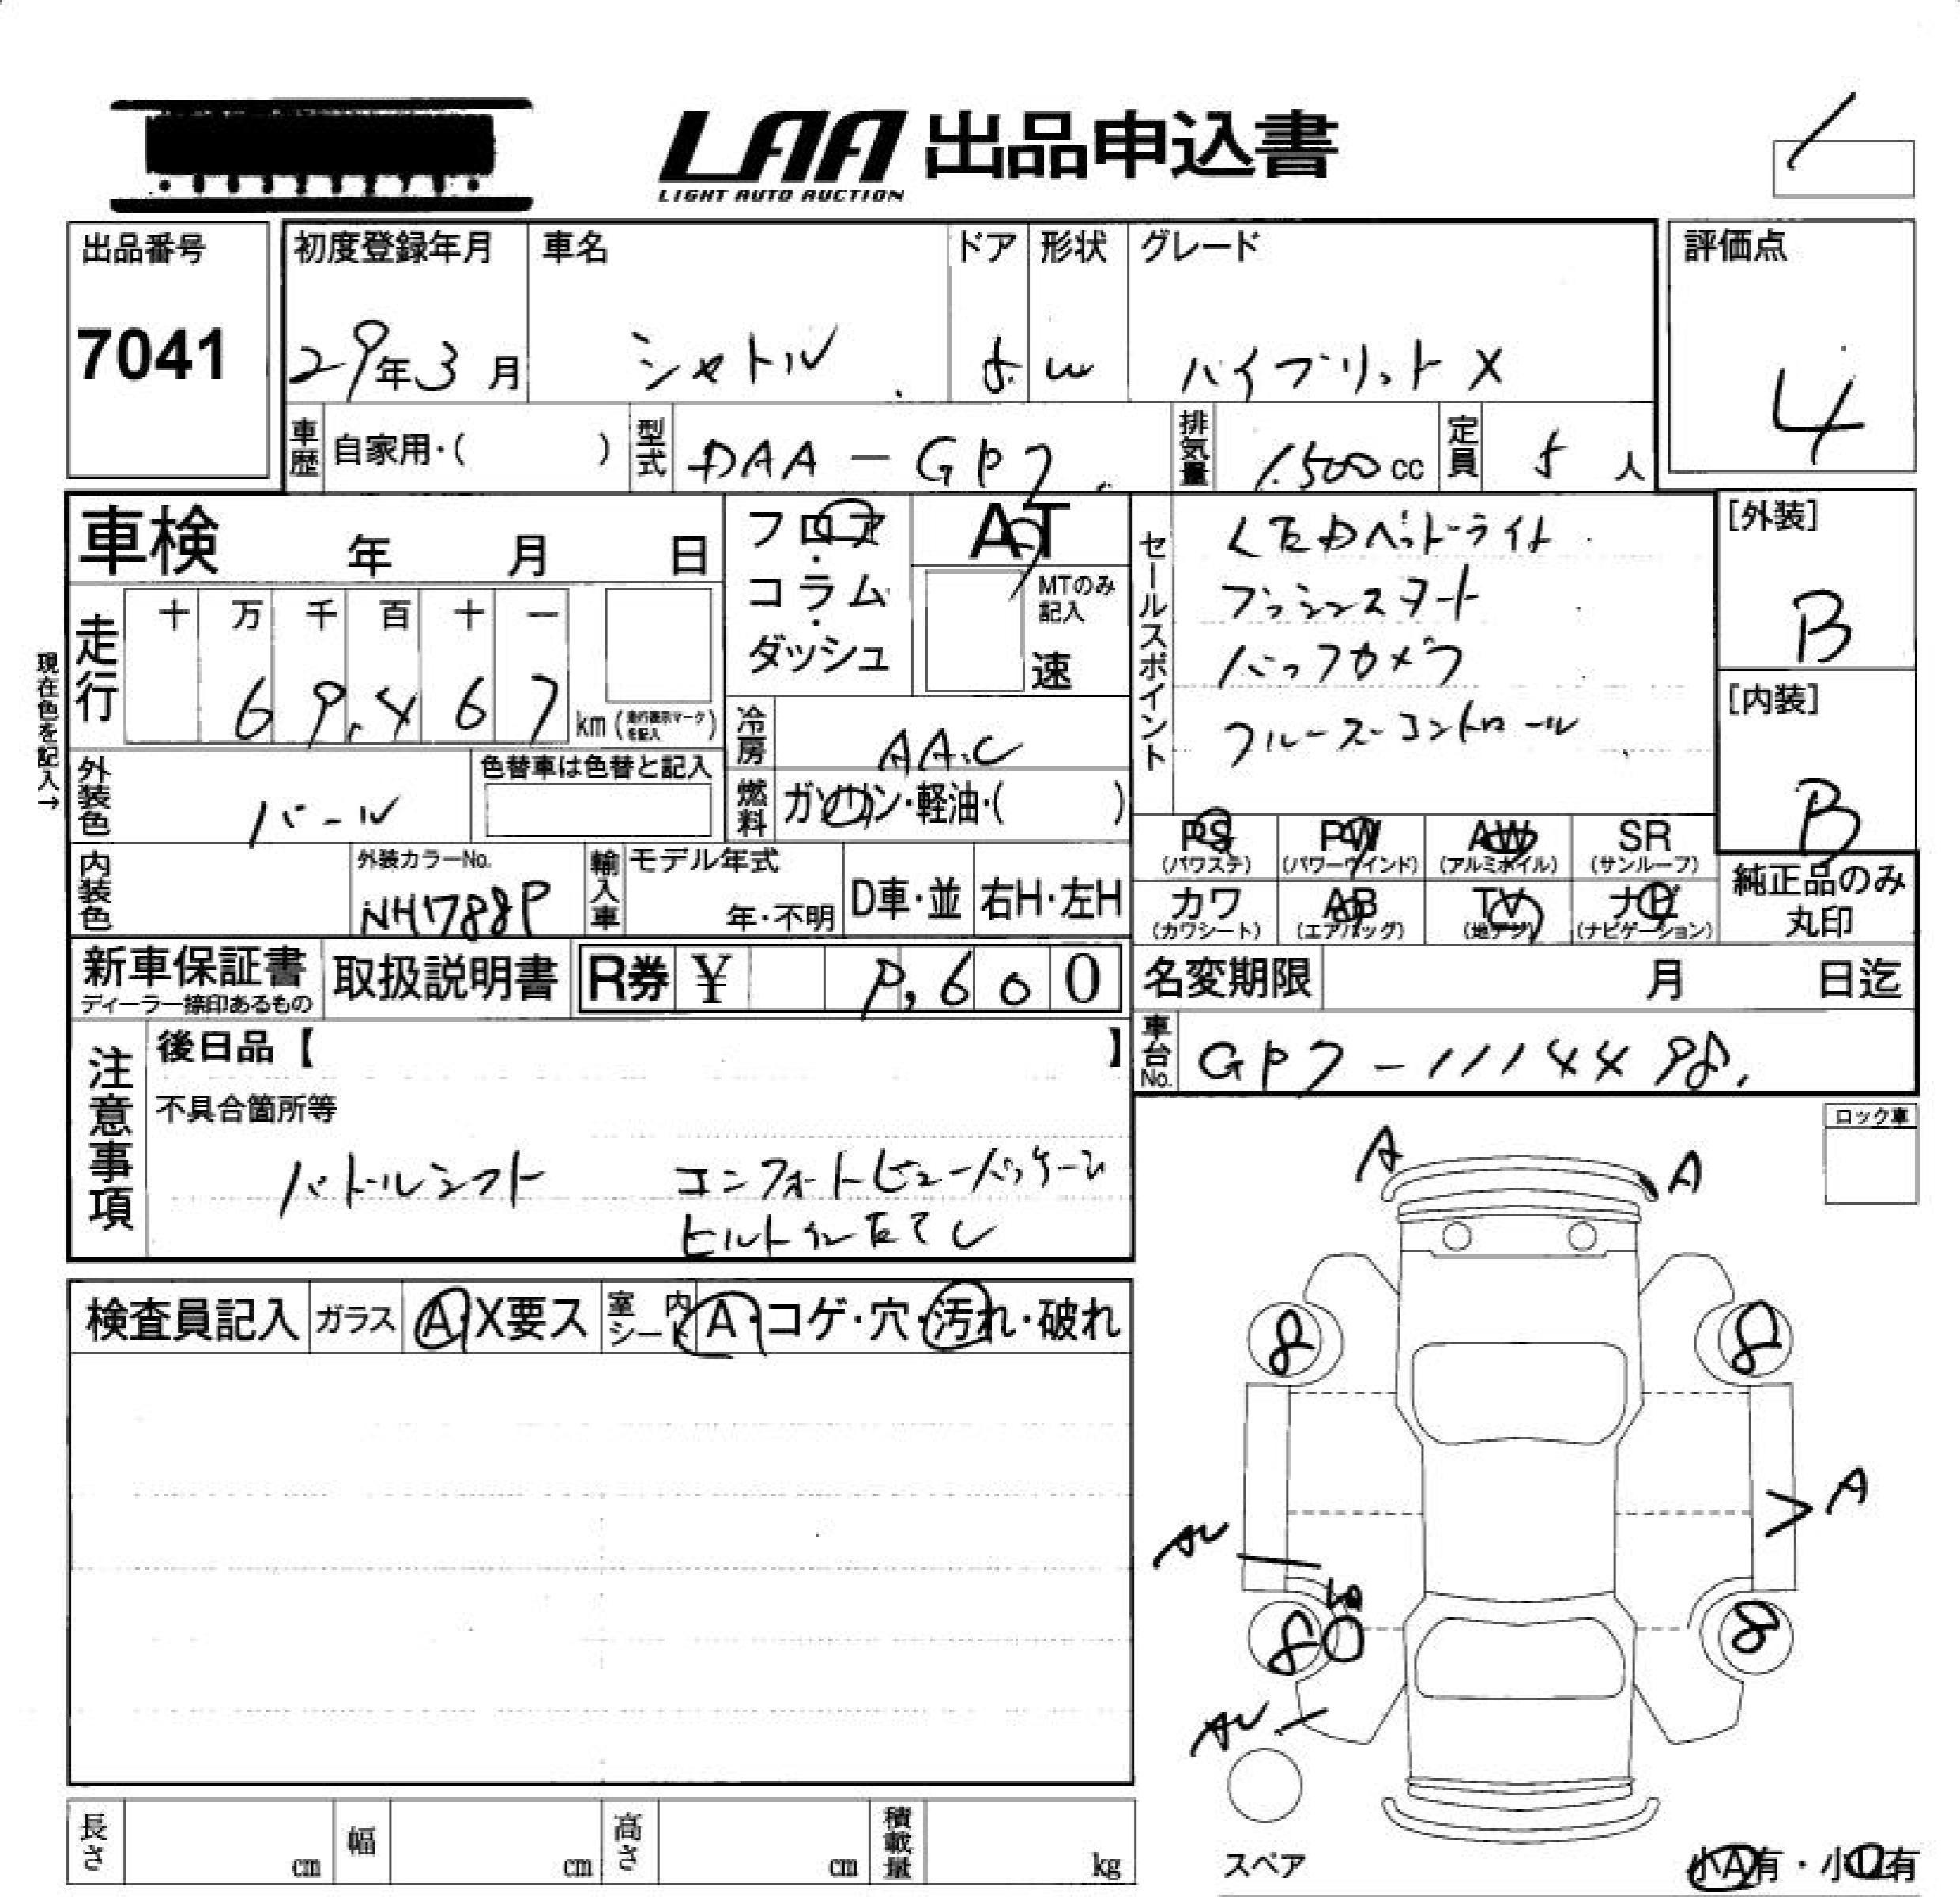 LAA 出品申込書
LIGHT AUTO AUCTION
出品番号
7041
初度登録年月
29年3月
車名
シャトル
ドア
5
形状
W
グレード
ハイブリット X
評価点
4
車歴
自家用・( )
型式
DAA-GP7
排気量
1.500cc
定員
5人
車検 年 月 日
フロア・
コラム・
ダッシュ
AT
MTのみ
記入
速
セールスポイント
LEDヘッドライト
プッシュスタート
バックカメラ
クルーズコントロール
[外装]
B
[内装]
B
現在色を記入→
走行
十 万 千 百 十 一
6 9, 4 6 7 km
(走行表示マークを記入)
冷房
AAC
外装色
パール
色替車は色替と記入
燃料
ガソリン・軽油・( )
PS
(パワステ)
PW
(パワーウインド)
AW
(アルミホイル)
SR
(サンルーフ)
内装色
外装カラーNo.
NH788P
輸入車
モデル年式
年・不明
D車・並
右H・左H
カワ
(カワシート)
AB
(エアバッグ)
TV
(地デジ)
ナビ
(ナビゲーション)
純正品のみ
丸印
新車保証書
ディーラー捺印あるもの
取扱説明書
R券 ¥ 9,600
名変期限 月 日迄
車台No.
GP7-1114498
注意事項
後日品【 】
不具合箇所等
パドルシフト コンフォートビューパッケージ
ロック車
検査員記入
ガラス
A・X要ス
室内シート
A・コゲ・穴・汚れ・破れ
A
A
8
8
A
8
8
長さ cm
幅 cm
高さ cm
積載量 kg
スペア
小A有・小U有